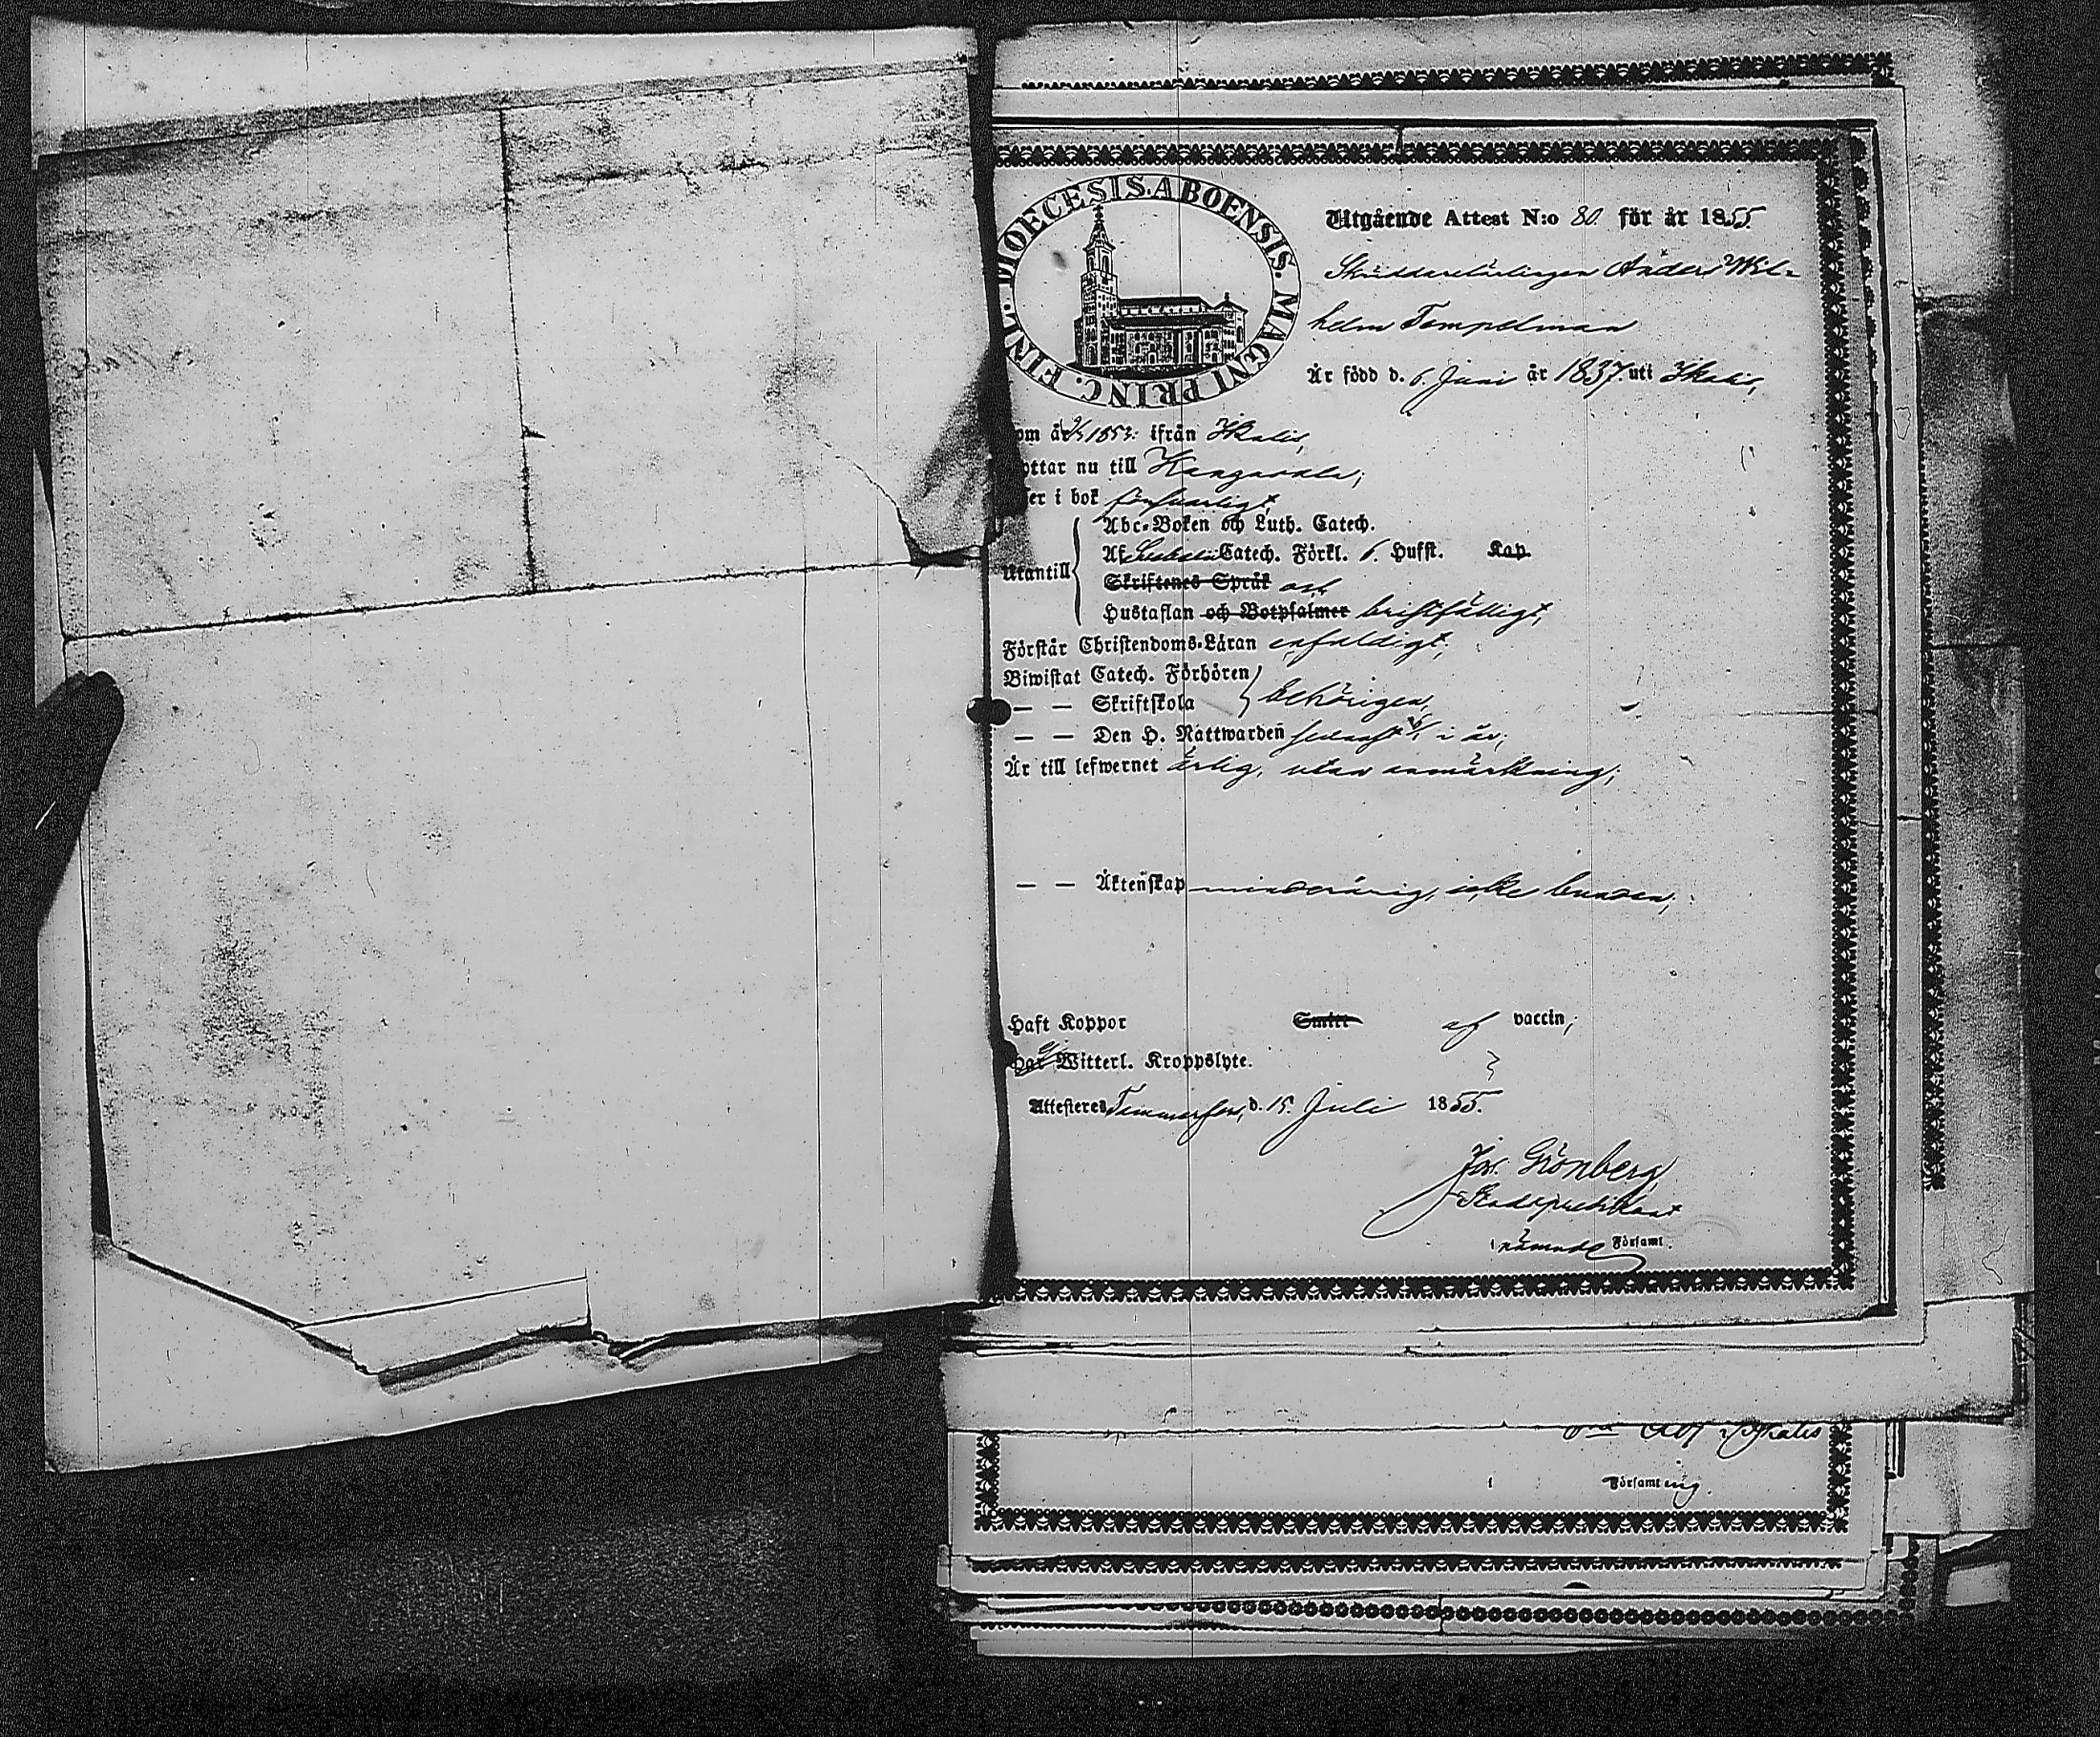 DIOECESIS. ABOENSIS. MAGNI PRINC. FINL.
Utgående Attest N:o 80 för år 1855.
Skräddarelärlingen Anders Wil-
helm Tempelman
Är född d. 6. Juni år 1837. uti Ikalis,
om år 1853. ifrån Ikalis,
ottar nu till Kangasala;
er i bok försvarligt,
Abc-Boken och Luth. Catech.
Af Catech. Förkl. 6. Hufst. Kap.
Utantill
Skriftenes Språk och
Hustaflan och Botpsalmer bristfälligt,
Förstår Christendoms-Läran enfaldigt;
Biwistat Catech. Förhören
— — Skriftskola behörigen,
— — Den H. Nattwarden senast i år;
Är till lefwernet ärlig, utan anmärkning;
— — Äktenskap minderårig, icke bunden;
Haft Koppor Smitt af vaccin;
Witterl. Kroppslyte.
Attesteres Tammerfors, d. 15. Juli 1855.
Jos. Grönberg
Stadspredikant
i nämnde Församl.
Ikalis
i Församling.